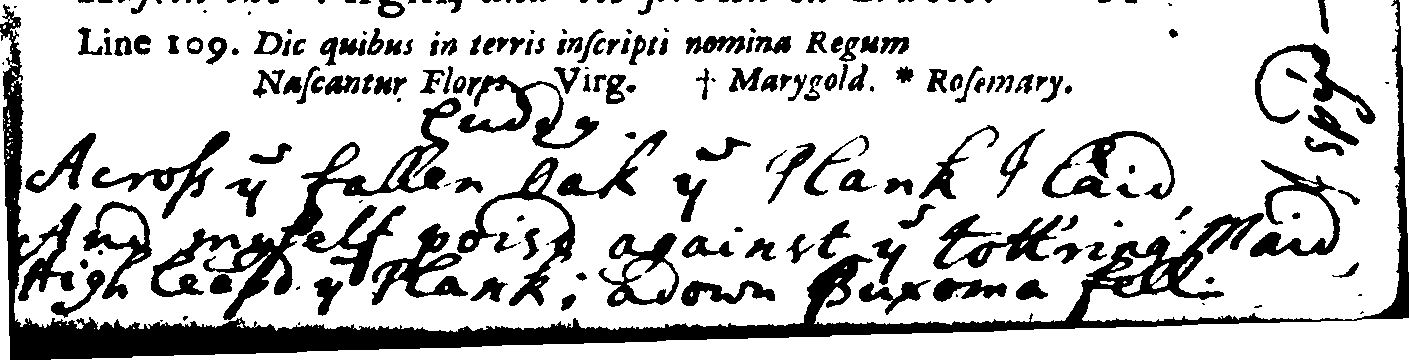 Line 109. Dic quibus in terris inſcripti nomina Regum
Naſcantur Flores Virg. † Marygold. * Roſemary.
Cuddy.
Acroſs yͤ fallen Oak yͤ Plank I laid,
And myſelf pois'd against yͤ tott'ring Maid,
High leap'd yͤ Plank; adown Buxoma fell:
I spy'd